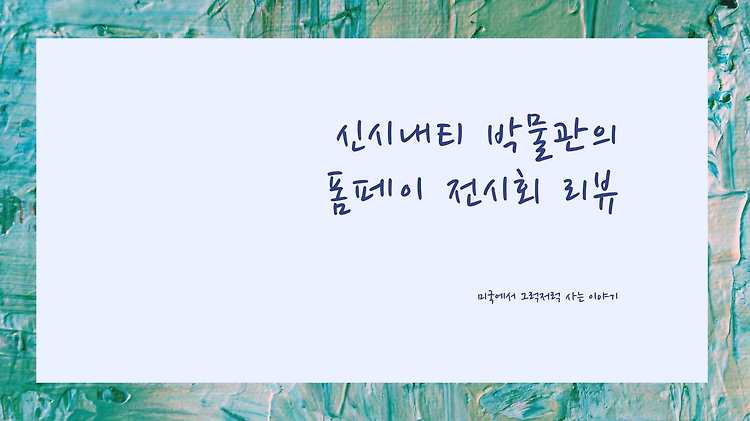 신시내티 박물관의
폼페이 전시회 리뷰
미국에서 그럭저럭 사는 이야기